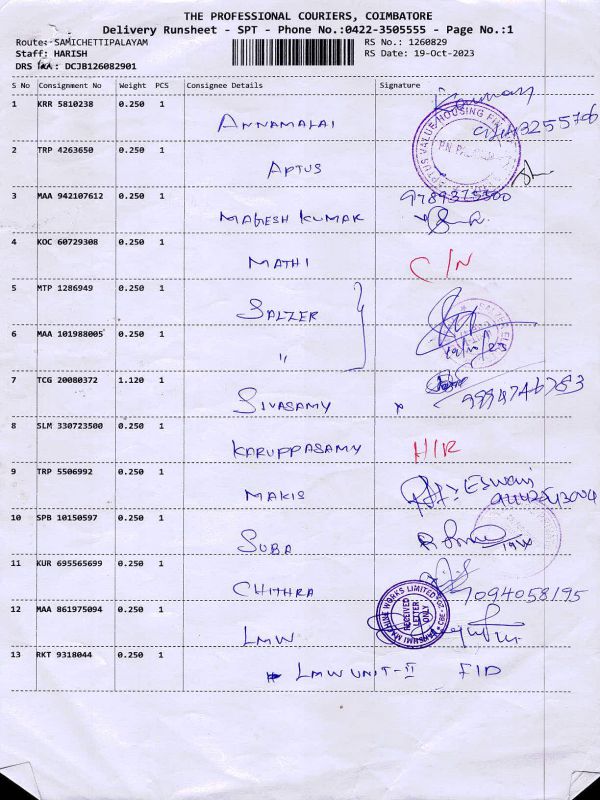 THE PROFESSIONAL COURIERS, COIMBATORE
Delivery Runsheet - SPT - Phone No.:0422-3505555 - Page No.:1
Route: SAMICHETTIPALAYAM
RS No.: 1260829
Staff: HARISH
RS Date: 19-Oct-2023
DRS : DCJB126082901
S No Consignment No Weight PCS Consignee Details Signature
1 KRR 5810238 0.250 1 ANNAMALAI
2 TRP 4263650 0.250 1 APTUS
3 MAA 942107612 0.250 1 MAGESH KUMAR 9789375500
4 KOC 60729308 0.250 1 MATHI C/N
5 MTP 1286949 0.250 1 SALZER
6 MAA 101988005 0.250 1 "
7 TCG 20080372 1.120 1 SIVASAMY x 9994746783
8 SLM 330723500 0.250 1 KARUPPASAMY H/R
9 TRP 5506992 0.250 1 MAKIS Eswari
10 SPB 10150597 0.250 1 SUBA
11 KUR 695565699 0.250 1 CHITHRA 7094058195
12 MAA 861975094 0.250 1 LMW RECEIVED LETTER ONLY
13 RKT 9318044 0.250 1 LMW UNIT-II FID